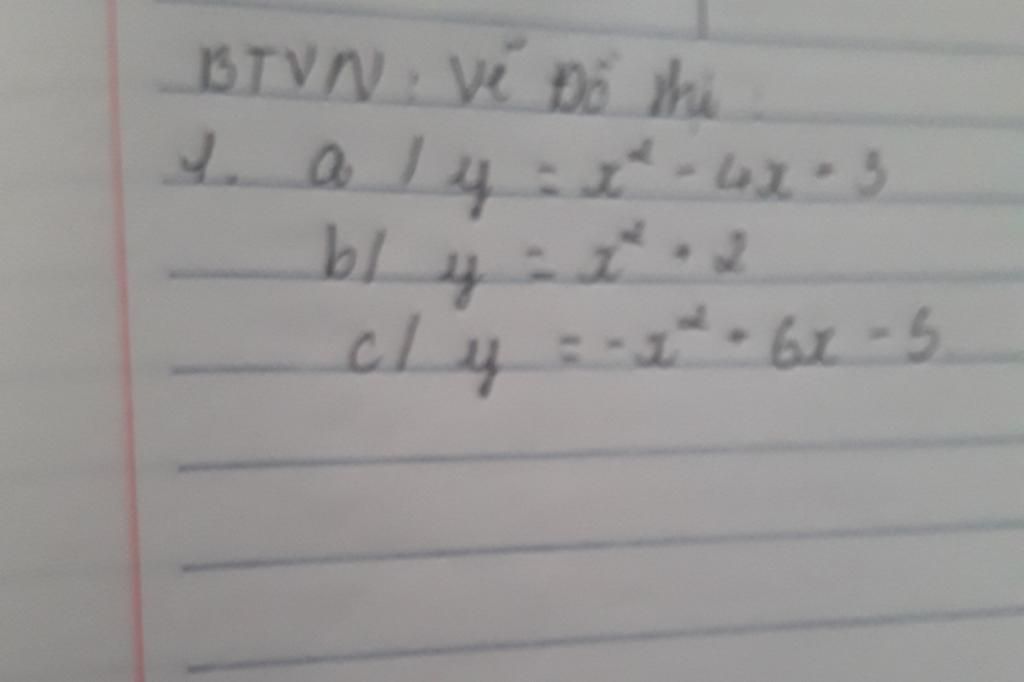 BTVN: Vẽ Đồ thị:
1. a / y = x² - 4x + 3
b/ y = x² + 2
c/ y = -x² + 6x - 5